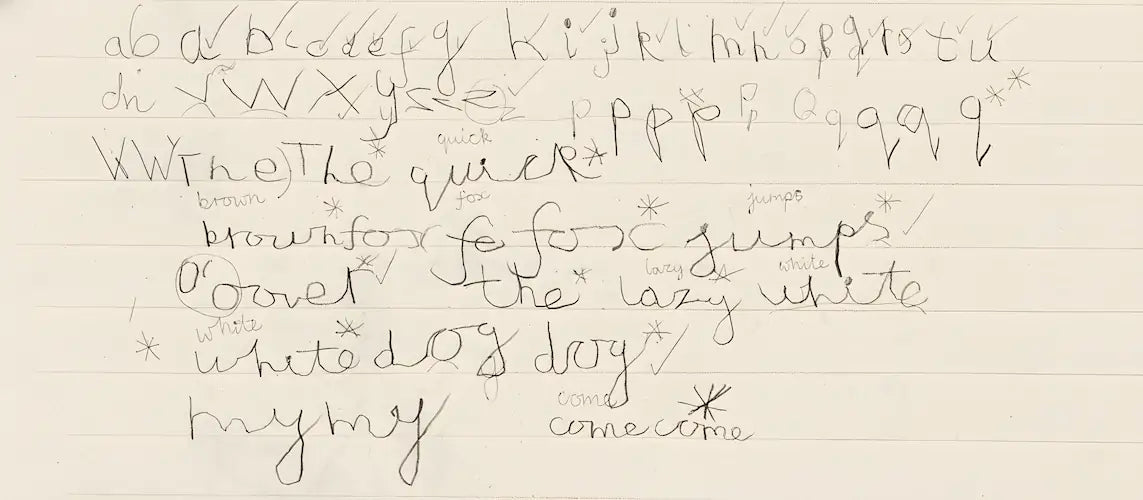 ab a b c d d e f g h i j k l m n o p q r s t u
v W X y z p p p p P p Q q q q q
W W The The quick quick
brown fox jumps
brown fox fe fox jumps
lazy white
O over the lazy white
white
white dog dog
come
my my come come